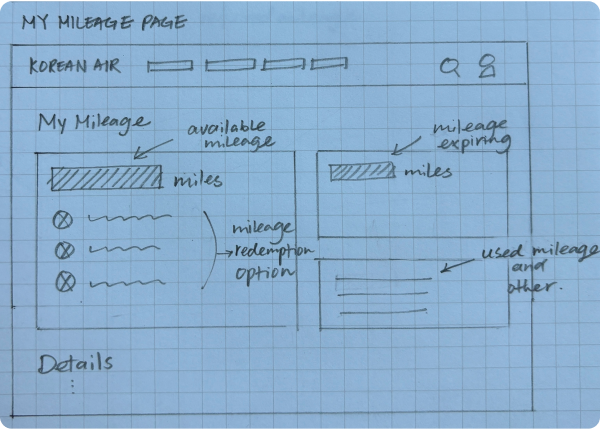 MY MILEAGE PAGE
KOREAN AIR
My Mileage
available
mileage
miles
mileage
redemption
option
mileage
expiring
miles
used mileage
and
other.
Details